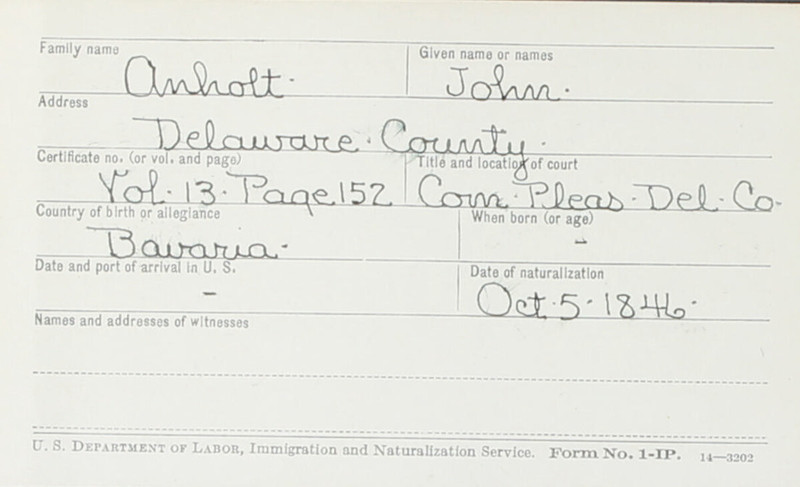 Family name Given name or names
Anholt. John.
Address
Delaware. County.
Certificate no. (or vol. and page) Title and location of court
Vol. 13. Page 152 Com. Pleas. Del. Co.
Country of birth or allegiance When born (or age)
Bavaria. -
Date and port of arrival in U. S. Date of naturalization
- Oct. 5. 1846.
Names and addresses of witnesses
U. S. DEPARTMENT OF LABOR, Immigration and Naturalization Service. Form No. 1-IP. 14—3202